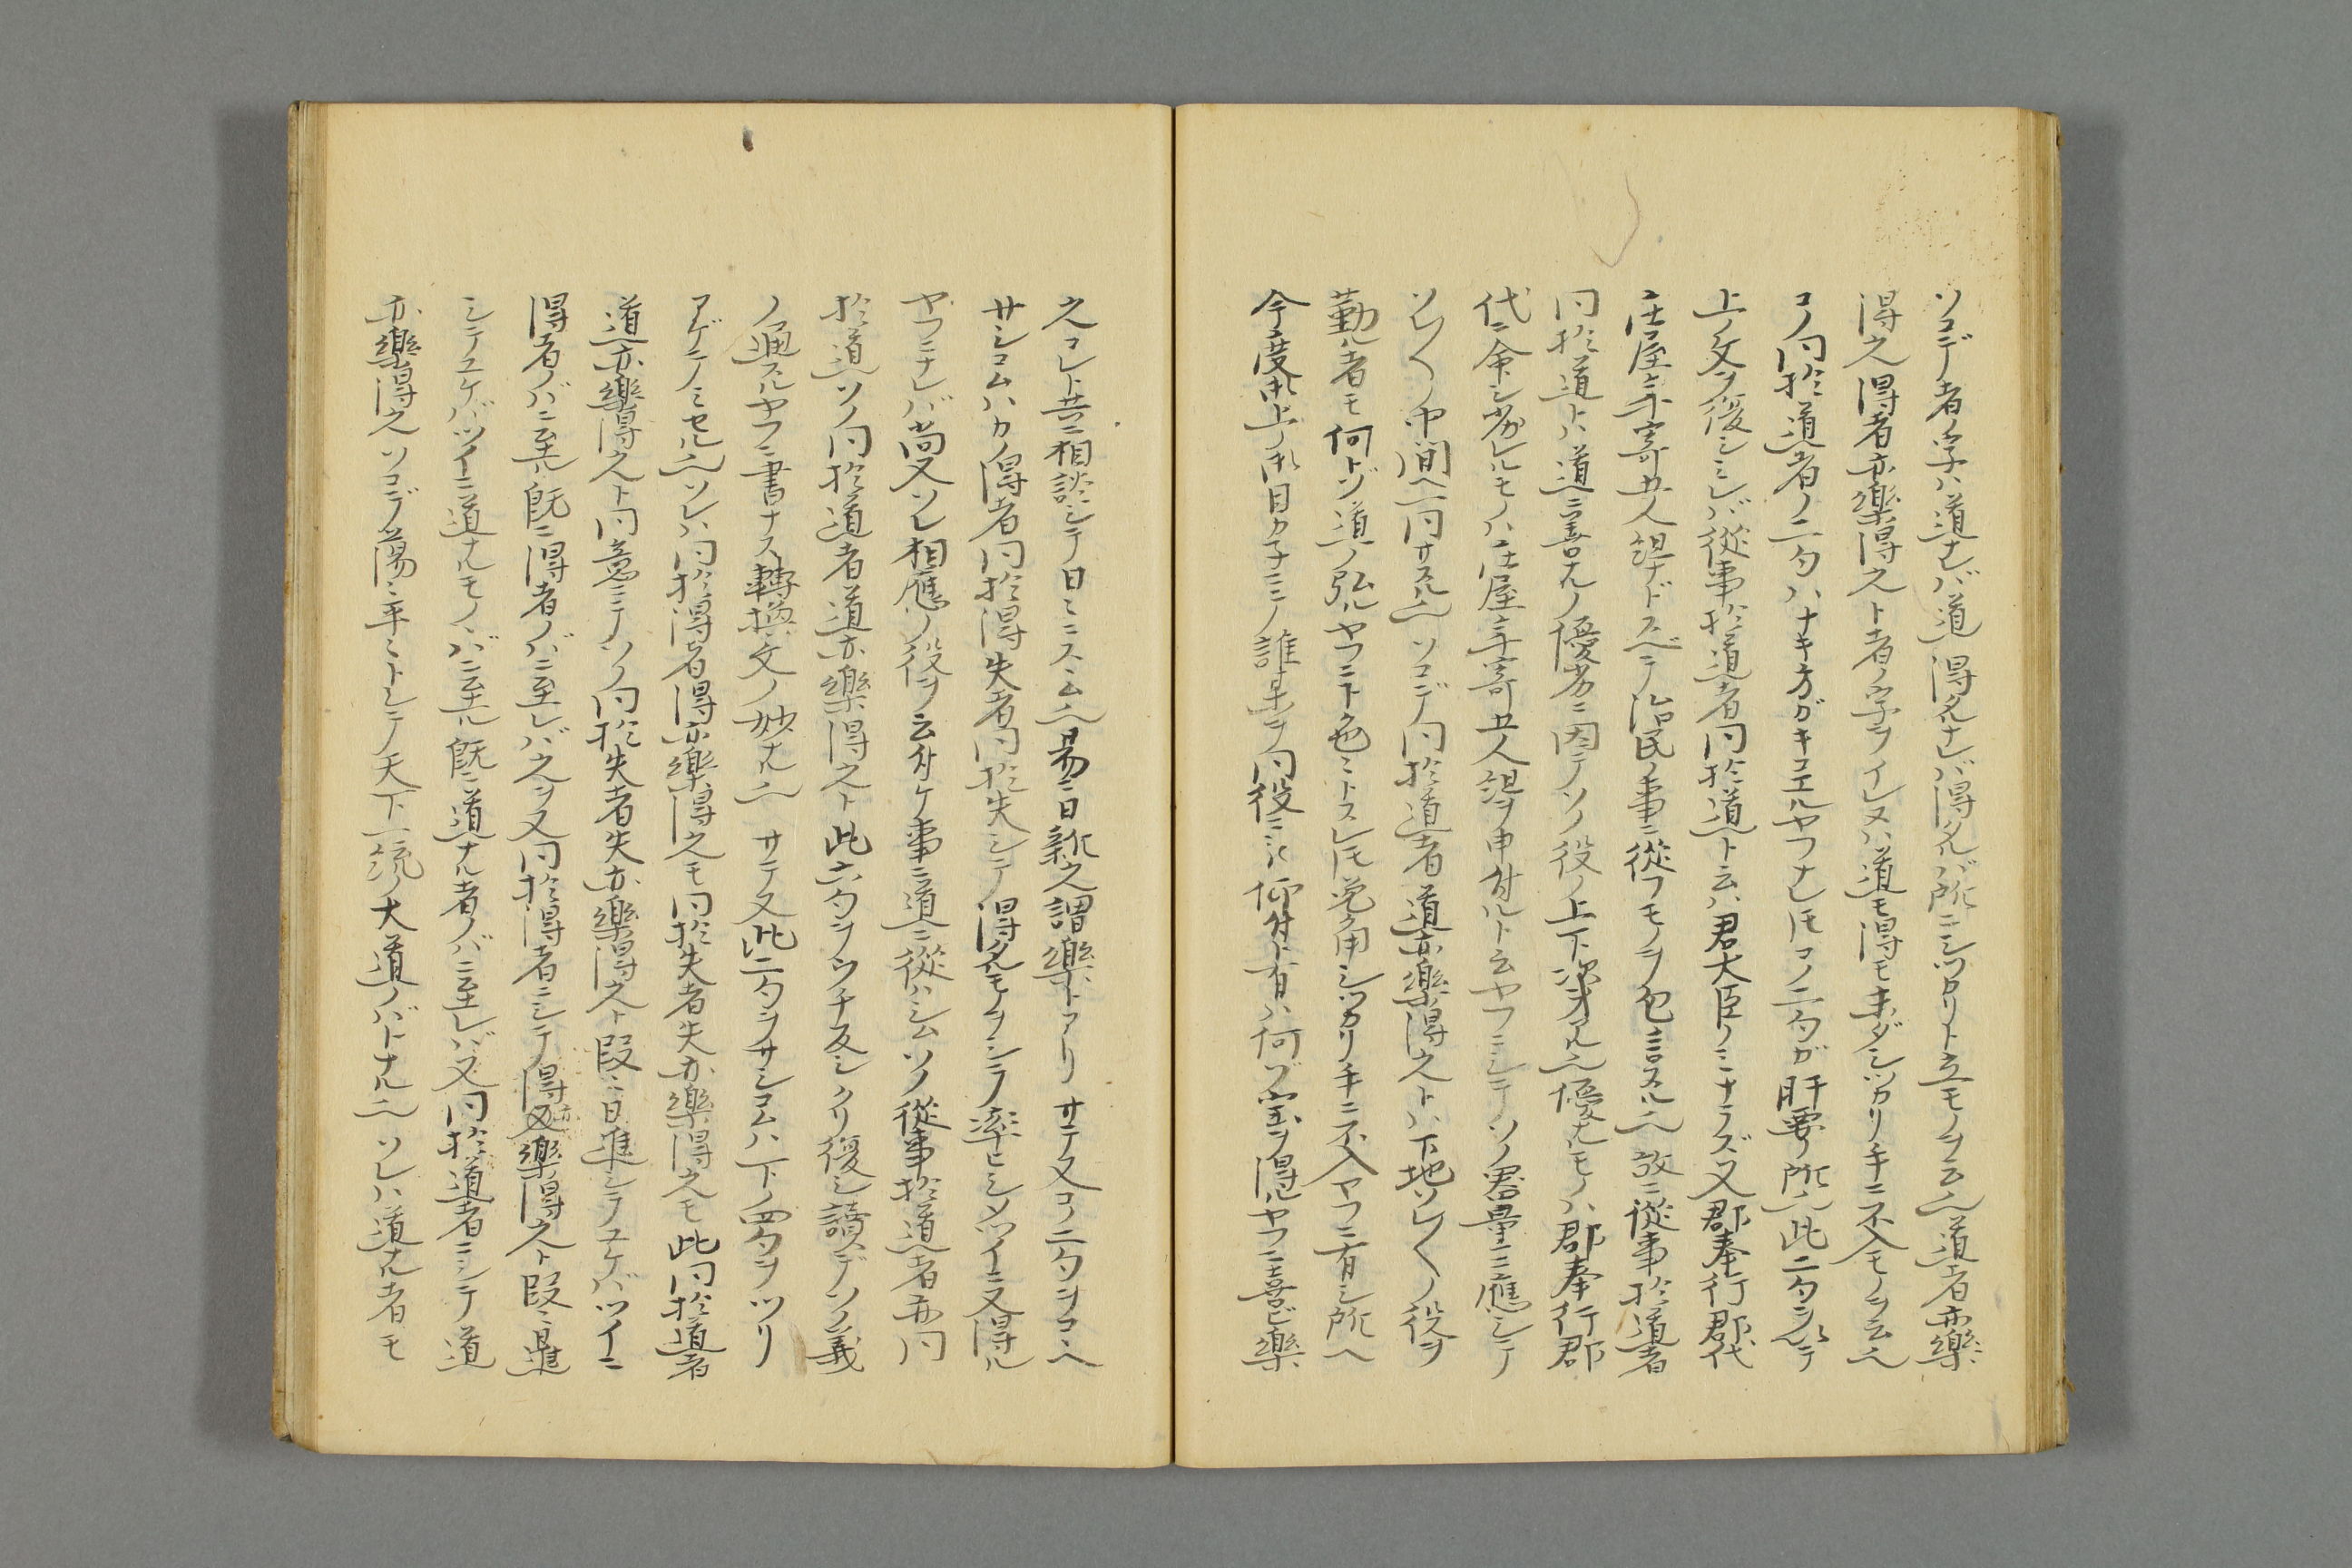 ソコデ者ノ字ハ道ナレバ道得タルナレバ得タルガ所ニシツカリト立モノヲ云也道者亦樂
得之得者亦樂得之ト者ノ字ヲイレヌハ道モ得モ未ダシツカリ手ニ不入モノヲ云也
コノ同於道者ノ二句ハナキ方ガキコエルヤフナレ𪜈コノ二句ガ肝要ノ所也此二句ヲ以テ
上ノ文ヲ復シミレバ從事於道者同於道ト云ハ君大臣ノミナラズ又郡奉行郡代
庄屋年寄五人組ナドスベテ治民ノ事ニ從フモノヲ包言スル也故ニ從事於道者
同於道トハ道ニ善ナルノ優劣ニ因テソノ役ノ上下次才アル也優ナルモノハ郡奉行郡
代ニ命シ劣レルモノハ庄屋年寄五人組ヲ申付ルト云ヤフニシテソノ器量ニ應シテ
ソレ〱ノ中間ヘ同サスル也ソコデ同於道者道亦樂得之トハ下地ソレ〱ノ役ヲ
勤ル者モ何トゾ道ノ弘ルヤフニト色ミトスレ𪜈兎角シツカリ手ニ不入ヤフニ有シ所ヘ
今度御上ノ御目カ子ニテ誰某ヲ同役ニ被仰付ト有ハ何ゾ宝ヲ得ルヤフニ喜ビ樂
之コレト共ニ相談シテ日ミニスヽム也易ニ曰新之謂樂トアリサテ又コノ二句ヲコヽヘ
サシコムハカノ得者同於得失者同於失シテ得タルモノヲシテ率ヒシメツイニ又得ル
ヤフニナレバ尚又ソレ相應ノ役ヲ云付ケ事ニ道ニ從ハシムソノ從事於道者亦同
於道ソノ同於道者道亦樂得之ト此六句ヲウチ反シクリ復シ讀デソノ義
ノ通スルヤフニ書ナス轉換文ノ妙ナル也サテ又此二句ヲサシコムハ下ノ四句ヲツリ
アゲテノミセル也ソレハ同於得者得亦樂得之モ同於失者失亦樂得之モ此同於道者
道亦樂得之ト同意ニテソノ同於失者失亦樂得之ト段ミ日進シテユケバツイニ
得者ノバニ至ル既ニ得者ノバニ至レバ之ヲ又同於得者ニシテ得亦樂得之ト段ミ進
シテユケバツイニ道ナルモノヽバニ至ル既ニ道ナル者ノバニ至レバ又同於道者ニシテ道
亦樂得之ソコデ蕩ミ平ミトシテ天下一統ノ大道ノバトナル也ソレハ道ナル者モ